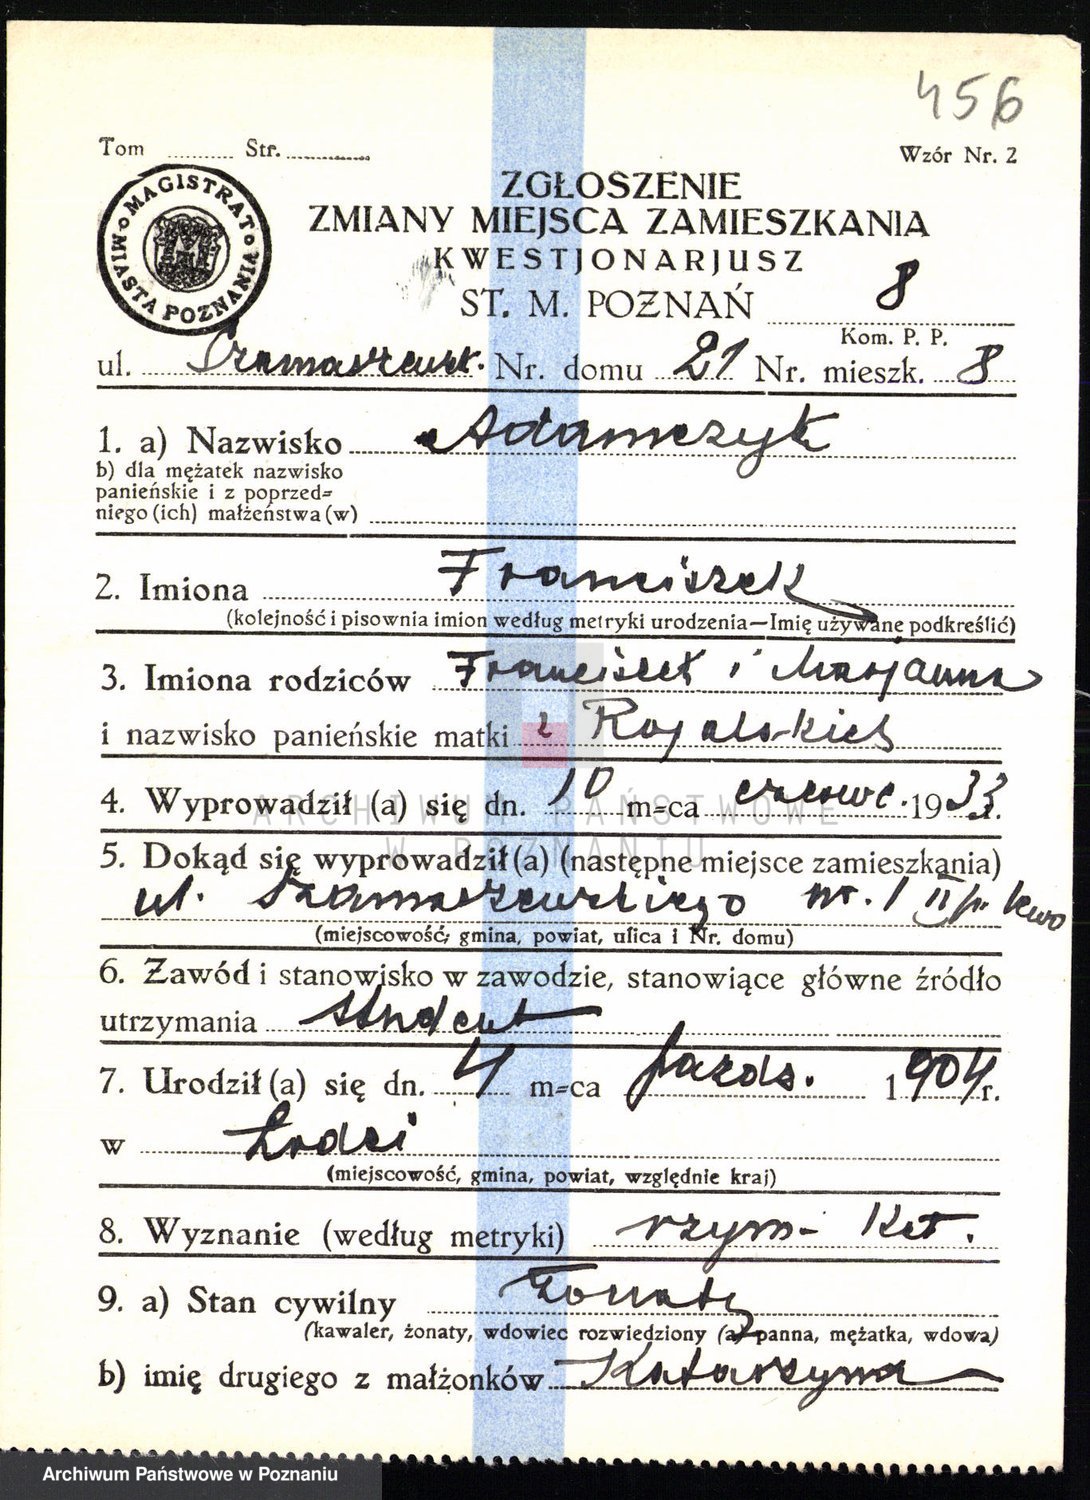 456
Tom ........ Str. ............
Wzór Nr. 2
MAGISTRAT MIASTA POZNANIA
ZGŁOSZENIE
ZMIANY MIEJSCA ZAMIESZKANIA
KWESTJONARJUSZ
ST. M. POZNAŃ 8
Kom. P. P.
ul. Nr. domu 21 Nr. mieszk. 8
1. a) Nazwisko Adamczyk
b) dla mężatek nazwisko
panieńskie i z poprzed=
niego (ich) małżeństwa (w)
2. Imiona Franciszek
(kolejność i pisownia imion według metryki urodzenia—Imię używane podkreślić)
3. Imiona rodziców Franciszek i Marjanna
i nazwisko panieńskie matki z Rojalskich
4. Wyprowadził (a) się dn. 10 m=ca czerwc. 1933.
ARCHIWUM PAŃSTWOWE
W POZNANIU
5. Dokąd się wyprowadził(a) (następne miejsce zamieszkania)
ul. Szamarzewskiego nr. 1 II p.
(miejscowość, gmina, powiat, ulica i Nr. domu)
6. Zawód i stanowisko w zawodzie, stanowiące główne źródło
utrzymania student
7. Urodził (a) się dn. 4 m=ca pazdz. 1904 r.
w Łodzi
(miejscowość, gmina, powiat, względnie kraj)
8. Wyznanie (według metryki) rzym- Kat.
9. a) Stan cywilny żonaty
(kawaler, żonaty, wdowiec rozwiedziony (a) panna, mężatka, wdowa)
b) imię drugiego z małżonków Katarzyna
Archiwum Państwowe w Poznaniu